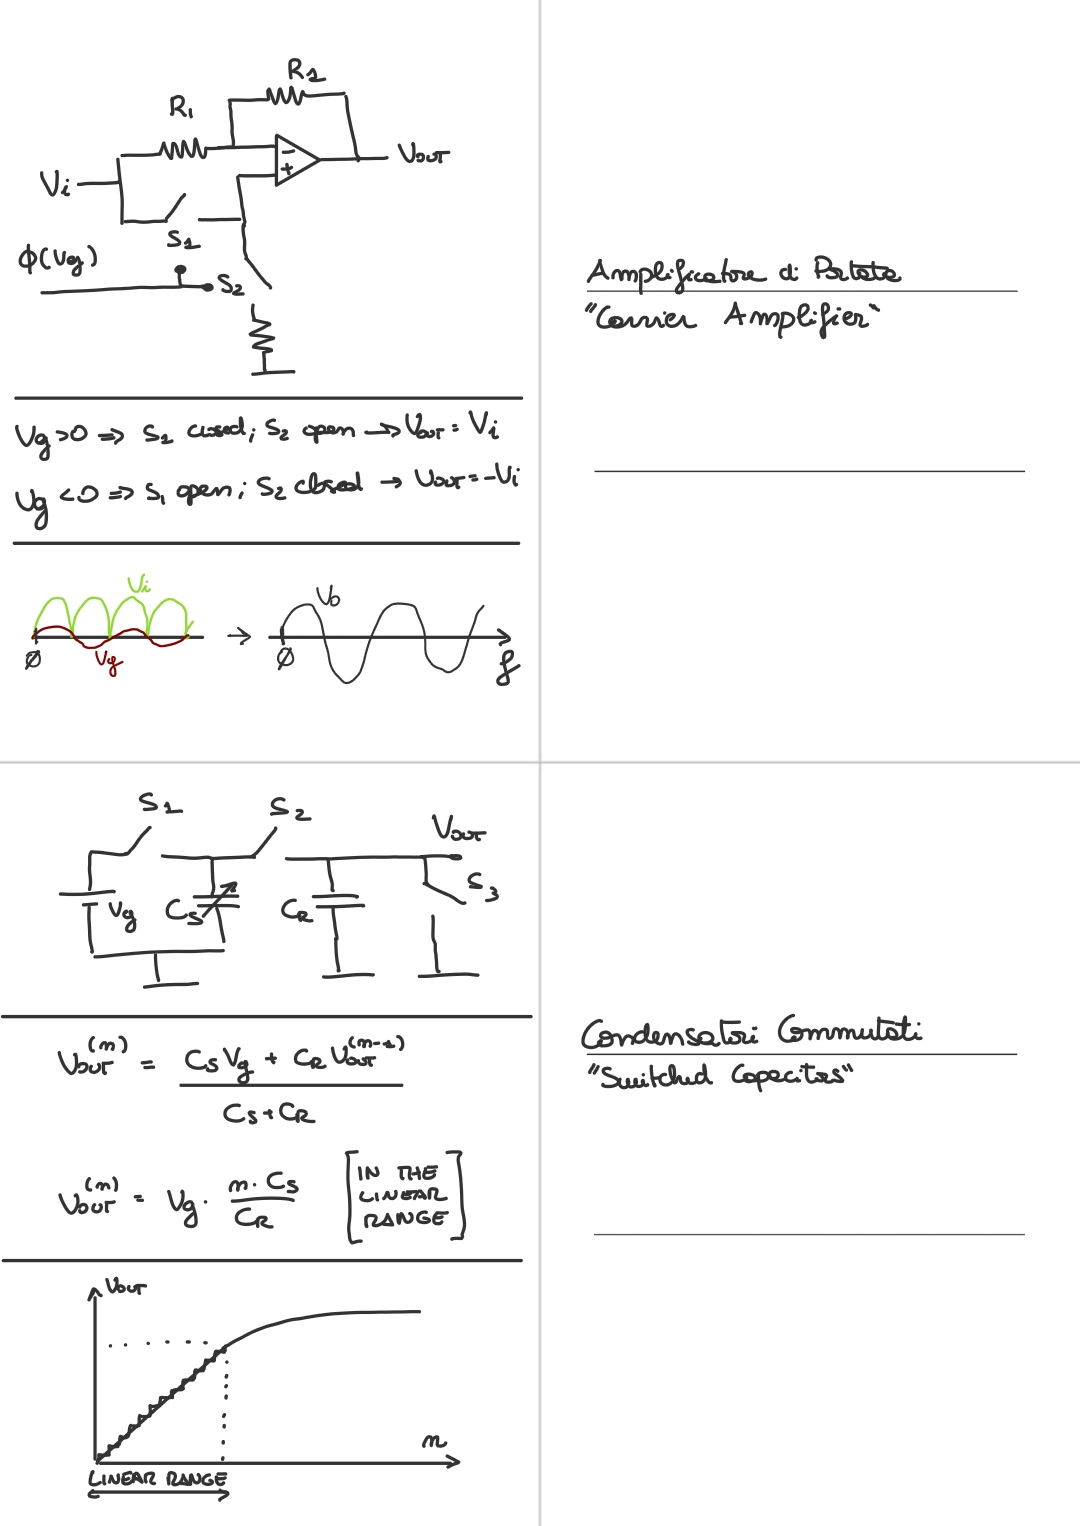 R1
R1
Vi
Vout
-
+
S1
ϕ(Vg)
S2
Amplificatore di Portata
"Carrier Amplifier"
Vg >0 => S1 closed; S2 open → Vout = Vi
Vg <0 => S1 open; S2 closed → Vout = -Vi
Vi
Vg
Ø
→
Vo
Ø
f
S1
S2
Vout
S3
Vg
CS
CR
Condensatori Commutati
"Switched Capacitors"
Vout(n) = CS Vg + CR Vout(n-1)
CS + CR
Vout(n) = Vg · n · CS
CR
[IN THE
LINEAR
RANGE]
Vout
n
LINEAR RANGE